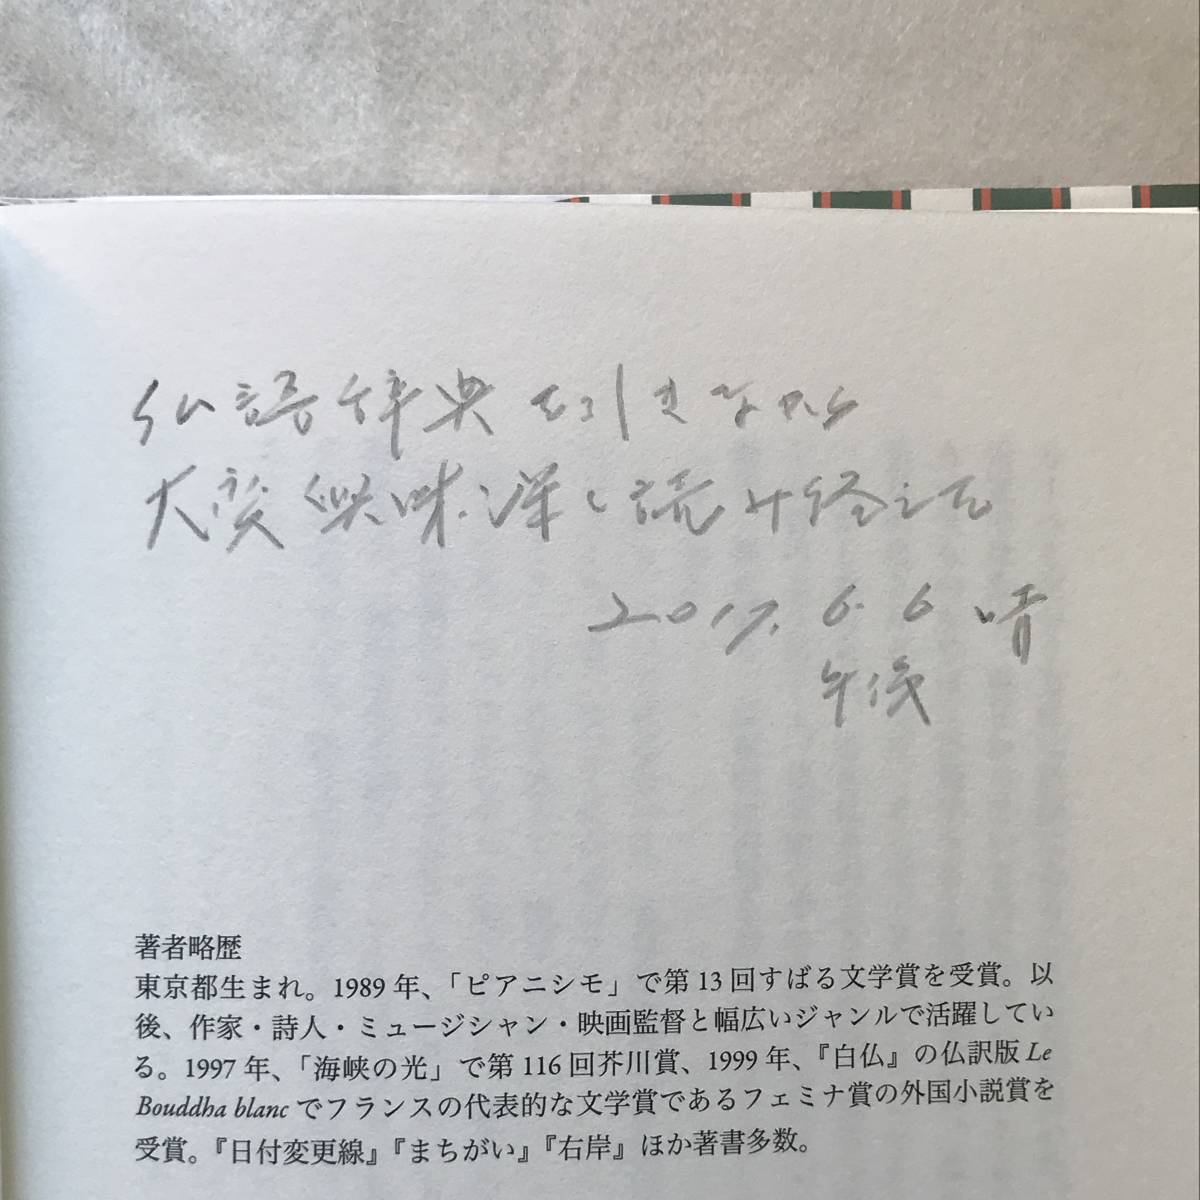 仏語辞典を引きながら
大変興味深く読み終えた
2017. 6. 6 晴
午後
著者略歴
東京都生まれ。1989年、「ピアニシモ」で第13回すばる文学賞を受賞。以
後、作家・詩人・ミュージシャン・映画監督と幅広いジャンルで活躍してい
る。1997年、「海峡の光」で第116回芥川賞、1999年、『白仏』の仏訳版 Le
Bouddha blanc でフランスの代表的な文学賞であるフェミナ賞の外国小説賞を
受賞。『日付変更線』『まちがい』『右岸』ほか著書多数。